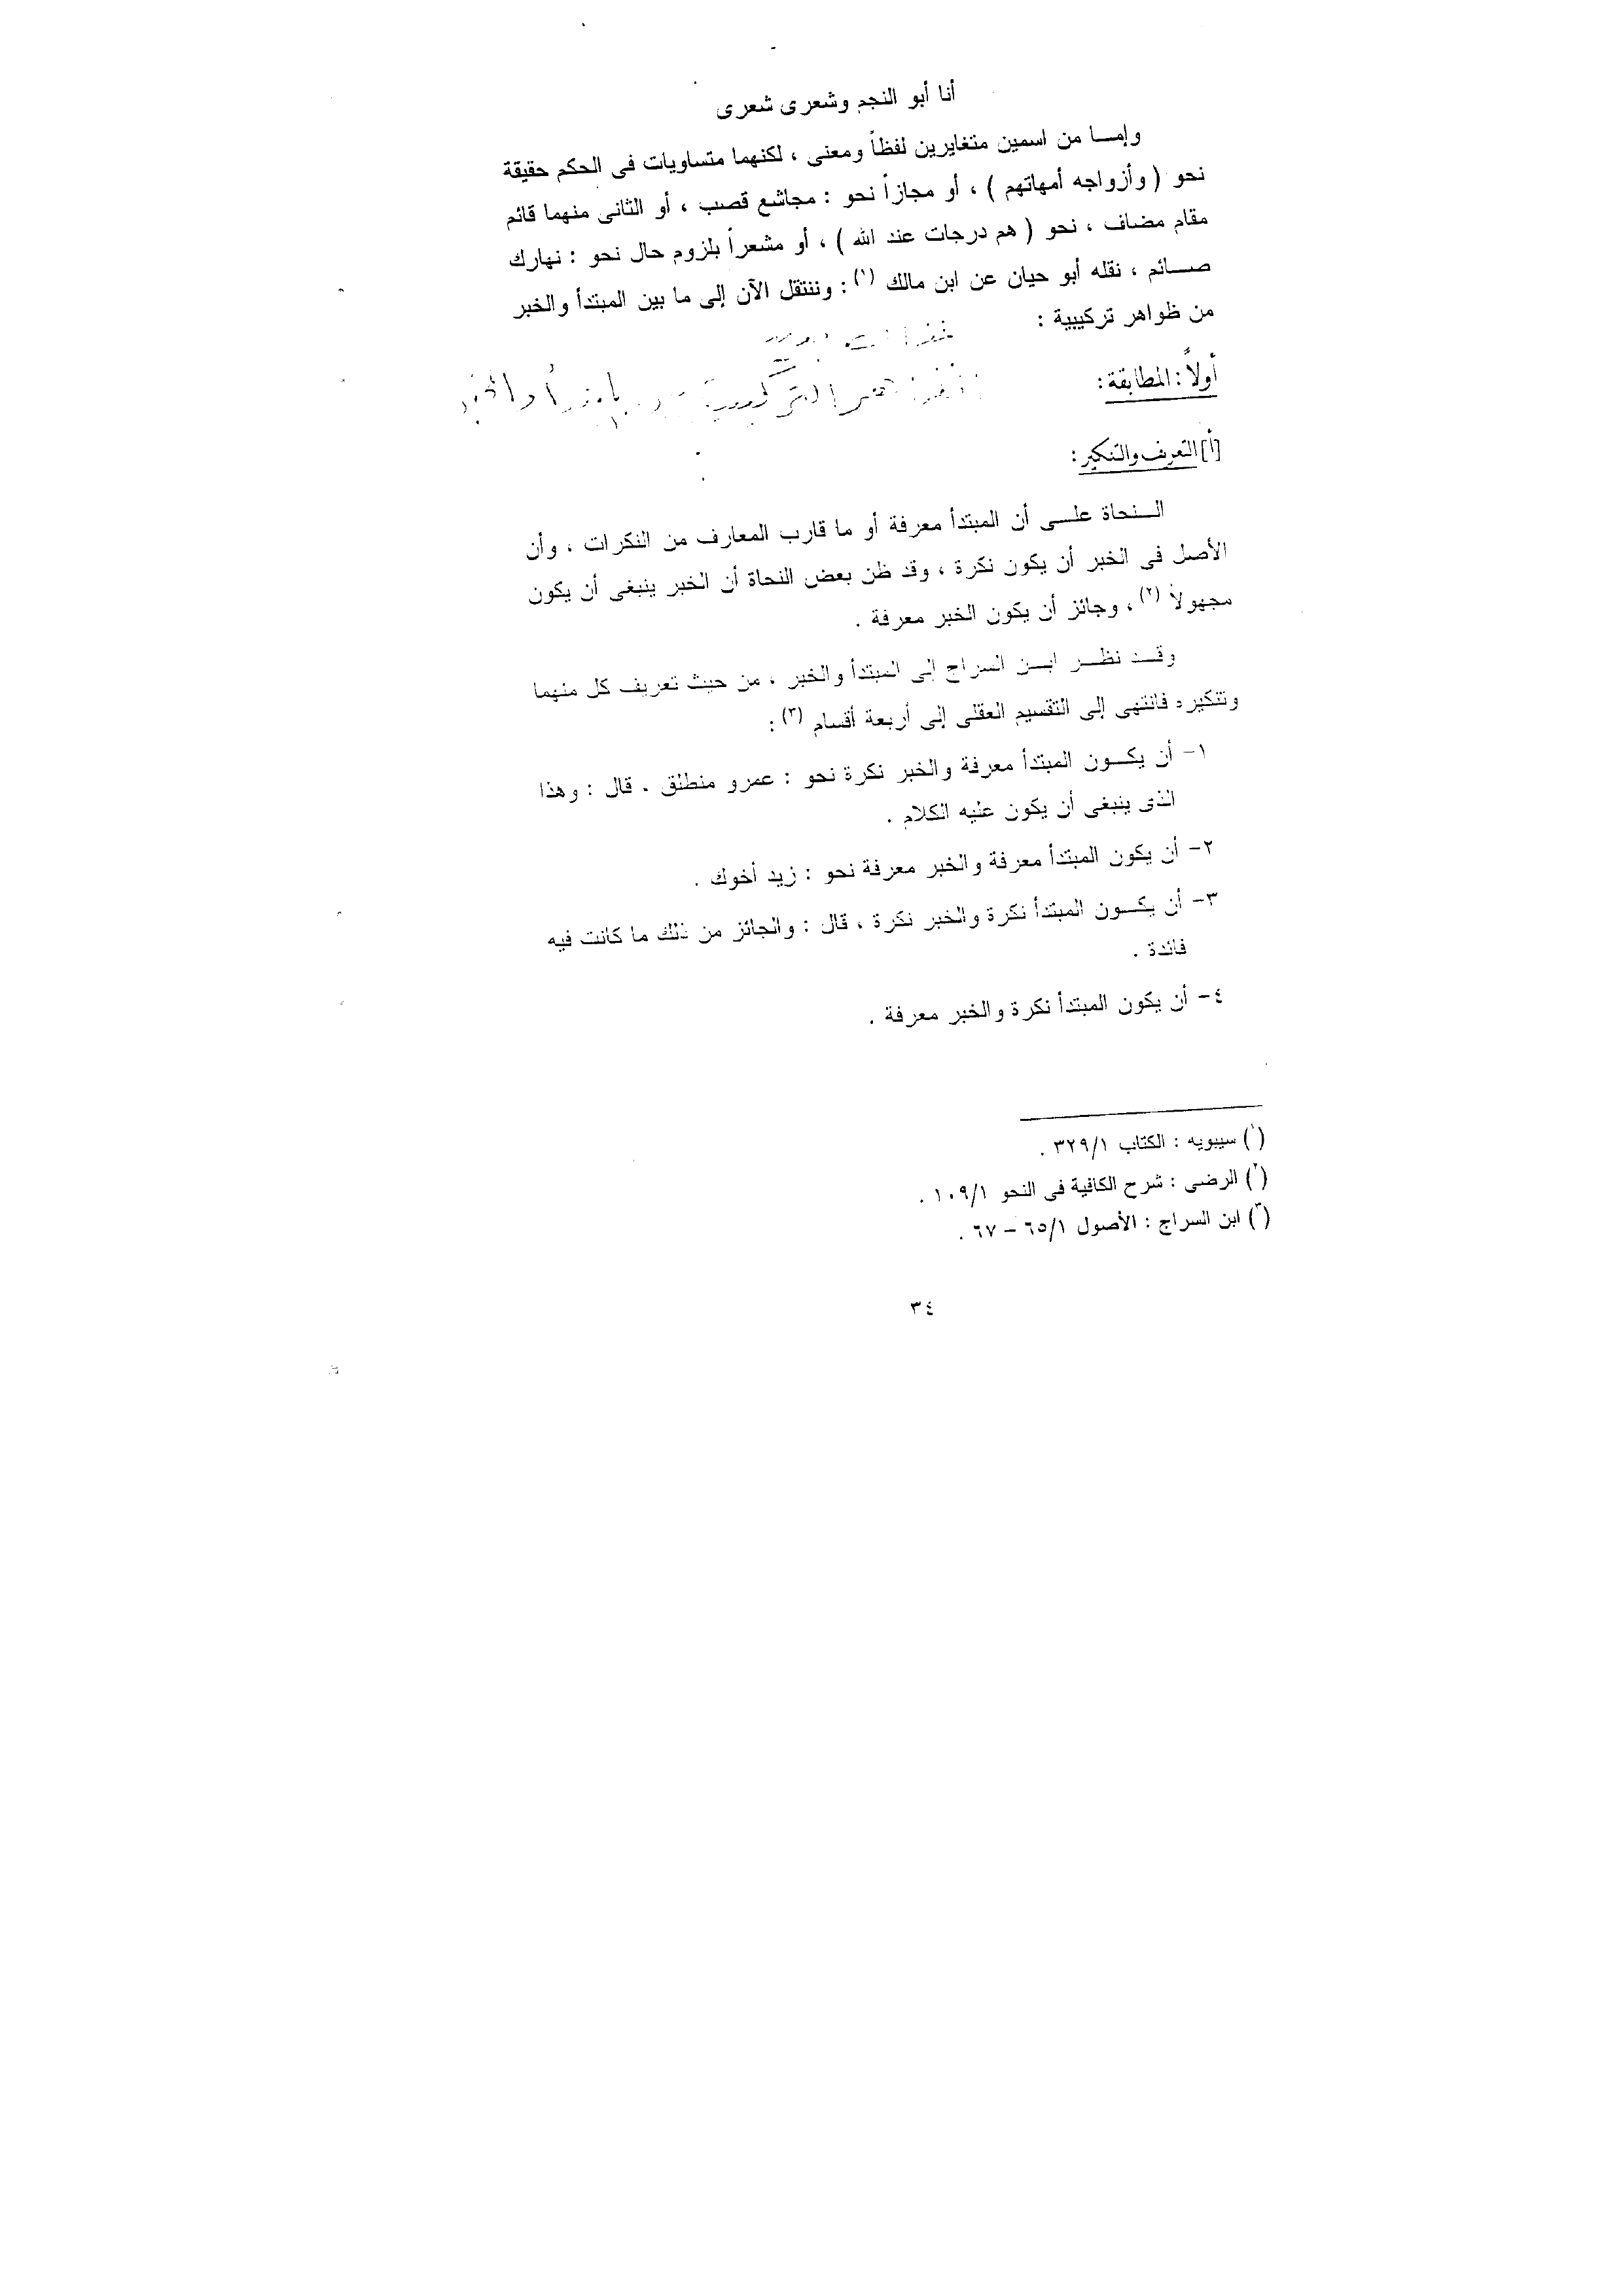 أنا أبو النجم وشعرى شعرى
وإمـــا من اسمين متغايرين لفظاً ومعنى ، لكنهما متساويات فى الحكم حقيقة
نحو ( وأزواجه أمهاتهم ) ، أو مجازاً نحو : مجاشع قصب ، أو الثانى منهما قائم
مقام مضاف ، نحو ( هم درجات عند الله ) ، أو مشعراً بلزوم حال نحو : نهارك
صـــائم ، نقله أبو حيان عن ابن مالك (١) : وننتقل الآن إلى ما بين المبتدأ والخبر
من ظواهر تركيبية :
أولاً : المطابقة :
[أ] التعرف والتنكير :
الـــنحاة علـــى أن المبتدأ معرفة أو ما قارب المعارف من النكرات ، وأن
الأصل فى الخبر أن يكون نكرة ، وقد ظن بعض النحاة أن الخبر ينبغى أن يكون
مجهولاً (٢) ، وجائز أن يكون الخبر معرفة .
وقـــد نظـــر ابـــن السراج إلى المبتدأ والخبر ، من حيث تعريف كل منهما
وتنكيره فانتهى إلى التقسيم العقلى إلى أربعة أقسام (٣) :
١- أن يكـــون المبتدأ معرفة والخبر نكرة نحو : عمرو منطلق . قال : وهذا
الذى ينبغى أن يكون عليه الكلام .
٢- أن يكون المبتدأ معرفة والخبر معرفة نحو : زيد أخوك .
٣- أن يكـــون المبتدأ نكرة والخبر نكرة ، قال : والجائز من ذلك ما كانت فيه
فائدة .
٤- أن يكون المبتدأ نكرة والخبر معرفة .
(١) سيبويه : الكتاب ٣٢٩/١ .
(٢) الرضى : شرح الكافية فى النحو ١٠٩/١ .
(٣) ابن السراج : الأصول ٦٥/١ – ٦٧ .
٣٤